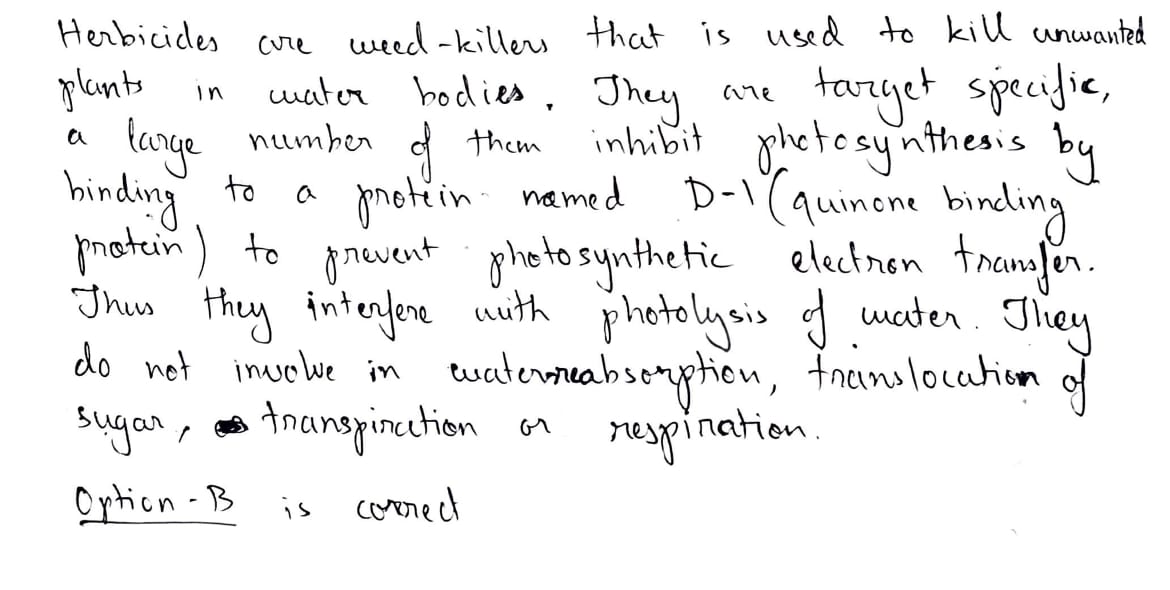 Herbicides are weed-killers that is used to kill unwanted
plants in water bodies. They are target specific,
a large number of them inhibit photosynthesis by
binding to a protein named D-1 (quinone binding
protein) to prevent photosynthetic electron transfer.
Thus they interfere with photolysis of water. They
do not involve in waterreabsorption, translocation of
sugar, transpiration or respiration.
Option-B is correct